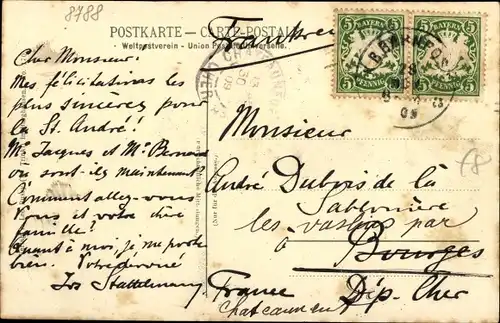 8788
POSTKARTE – CARTE POSTALE
Weltpostverein - Union Postale Universelle.
BAYERN
5 5
5 PFENNIG 5
BAYERN
5 5
5 PFENNIG 5
Cher Monsieur!
Mes félicitations les
plus sincères pour
la St. André!
Mr Jacques et Mr Bernard
où sont-ils maintenant?
Comment allez-vous
Vous et votre chère
famille?
Quant à moi, je me porte
bien. Votre dévoué
Jos
Monsieur
André Dubois de la
Sablonière
les vasons par
à Bourges
France Dép. Cher
Chateauneuf